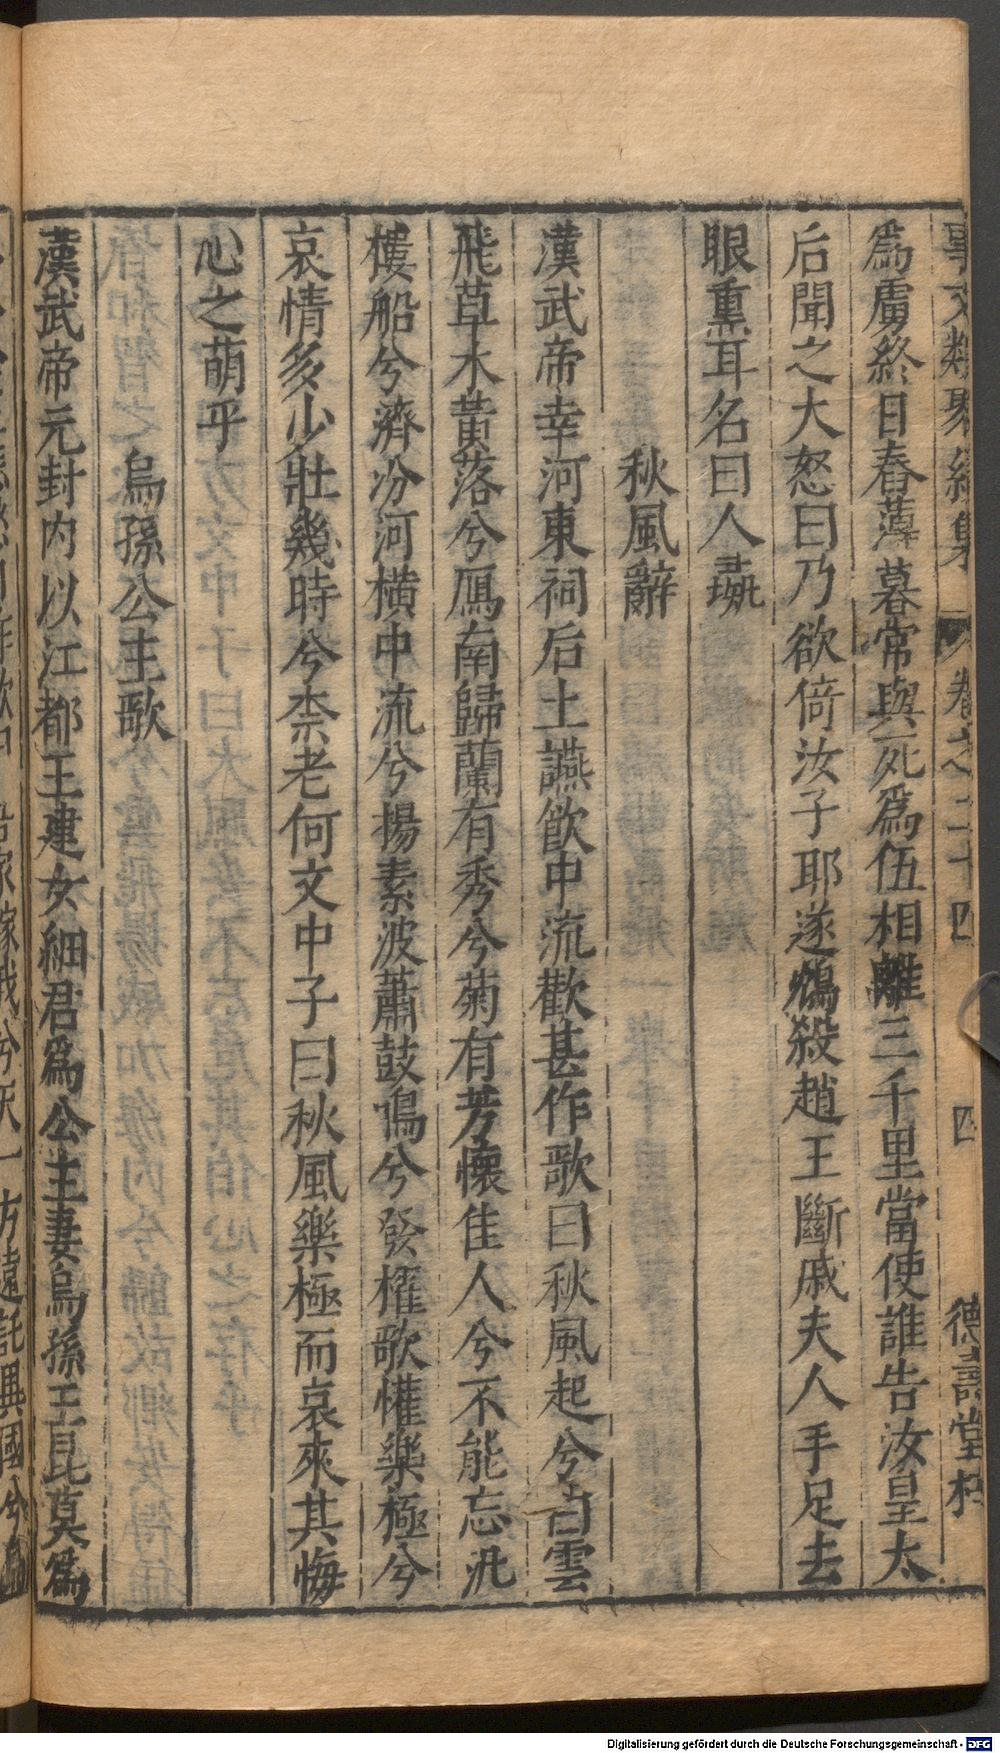 事文類聚續集 卷之二十四 四 德壽堂梓
為虜終日舂薄暮常與死為伍相離三千里當使誰告汝皇太
后聞之大怒曰乃欲倚汝子耶遂鴆殺趙王斷戚夫人手足去
眼熏耳名曰人彘
秋風辭
漢武帝幸河東祠后土讌飲中流歡甚作歌曰秋風起兮白雲
飛草木黃落兮鴈南歸蘭有秀兮菊有芳懷佳人兮不能忘汎
樓船兮濟汾河橫中流兮揚素波蕭鼓鳴兮發櫂歌懽樂極兮
哀情多少壯幾時兮柰老何文中子曰秋風樂極而哀來其悔
心之萌乎
烏孫公主歌
漢武帝元封内以江都王建女細君為公主妻烏孫王昆莫為
Digitalisierung gefördert durch die Deutsche Forschungsgemeinschaft - DFG